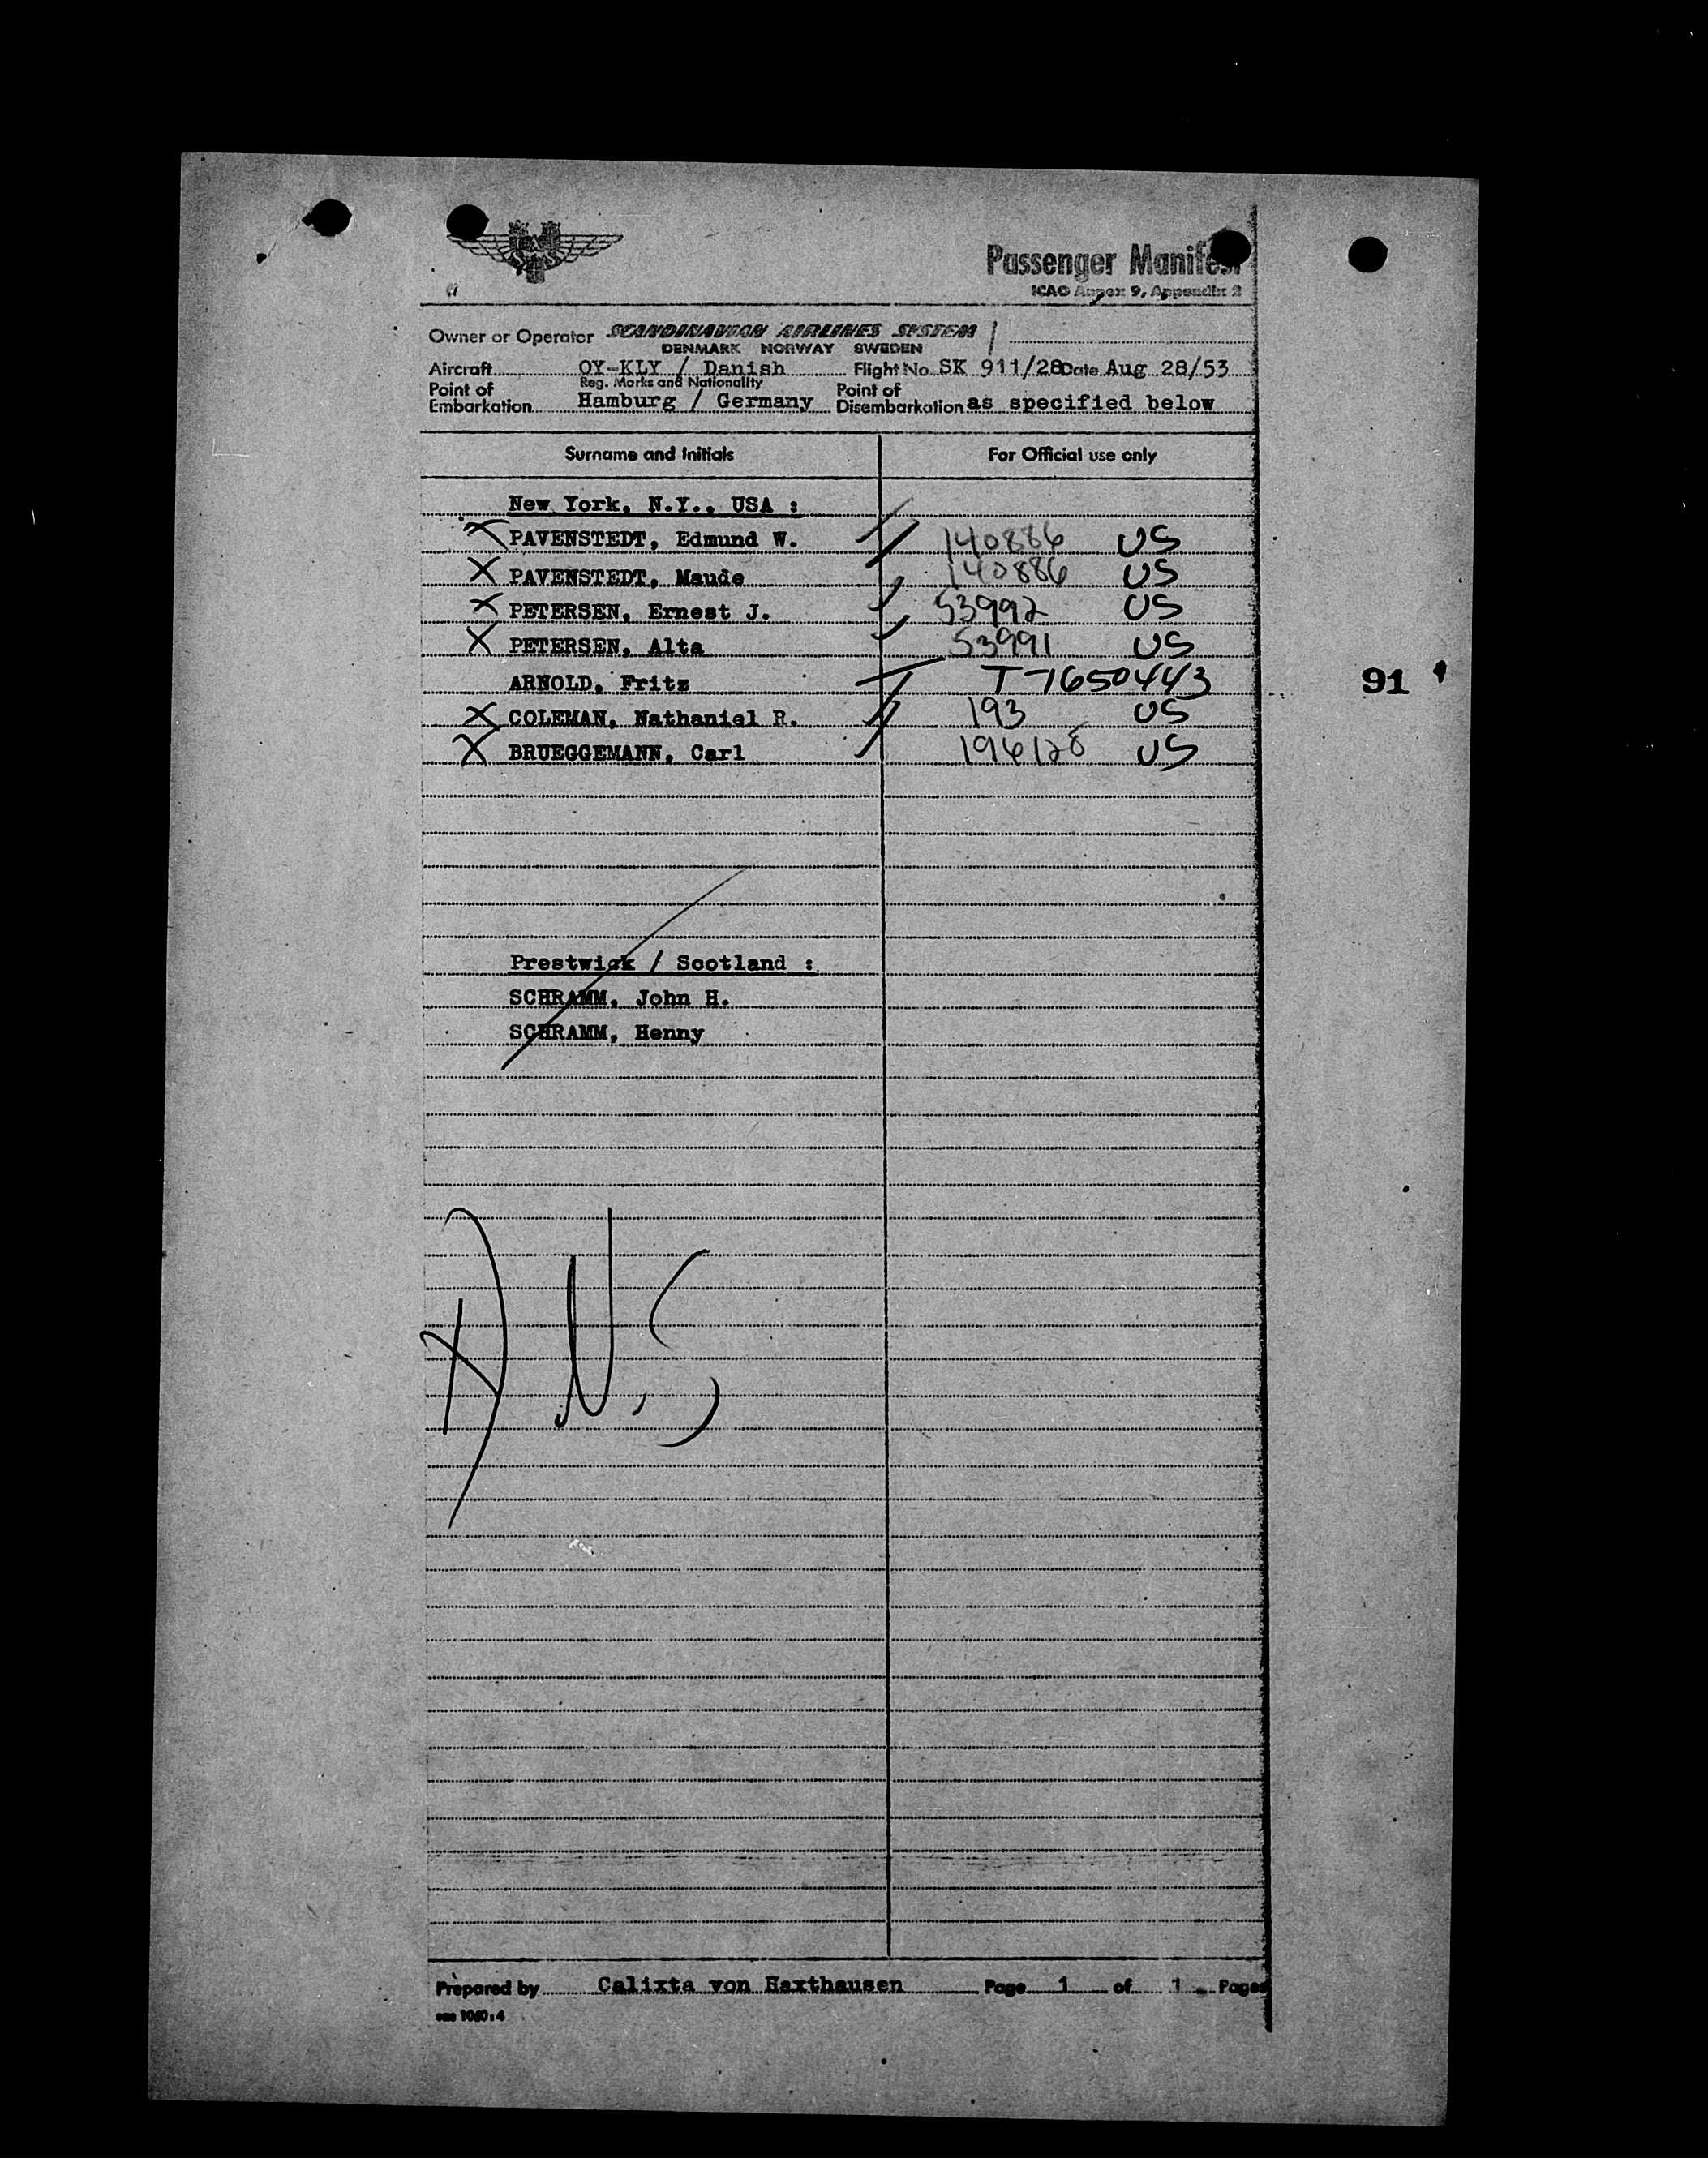 SAS
Passenger Manifest
ICAO Annex 9, Appendix 2
Owner or Operator SCANDINAVIAN AIRLINES SYSTEM
DENMARK NORWAY SWEDEN
Aircraft OY-KLY / Danish Flight No SK 911/28 Date Aug 28/53
Reg. Marks and Nationality
Point of Embarkation Hamburg / Germany Point of Disembarkation as specified below
Surname and Initials For Official use only
New York, N.Y., USA :
X PAVENSTEDT, Edmund W. 140886 US
X PAVENSTEDT, Maude 140886 US
X PETERSEN, Ernest J. 53992 US
X PETERSEN, Alta 53991 US
ARNOLD, Fritz T-7650443
91
X COLEMAN, Nathaniel R. 193 US
X BRUEGGEMANN, Carl 196128 US
Prestwick / Scotland :
SCHRAMM, John H.
SCHRAMM, Henny
Prepared by Calixta von Haxthausen Page 1 of 1 Pages
sas 1060:4